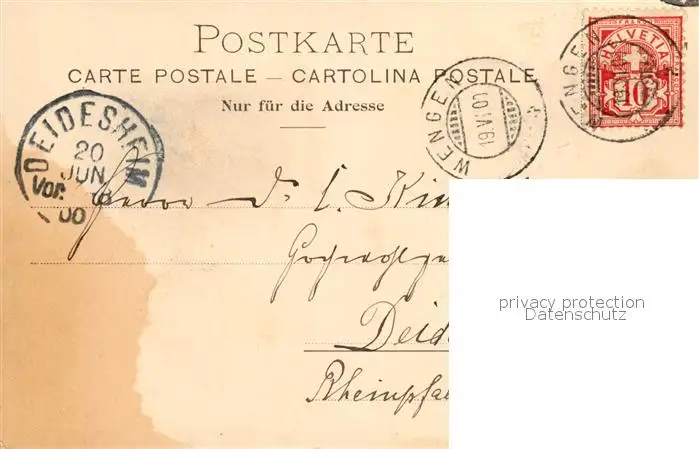 POSTKARTE
CARTE POSTALE — CARTOLINA POSTALE
Nur für die Adresse
HELVETIA
FRANCO
10
WENGEN
19.VI.00
WENGEN
DEIDESHEIM
20
JUN
Vor.
00
Herrn Dr. L.
Deid
Rheinpfal
privacy protection
Datenschutz